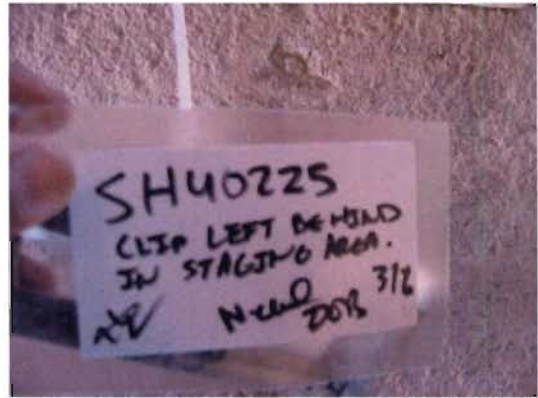 SH40225
CLIP LEFT BEHIND
IN STAGING AREA.
3/8
DOB